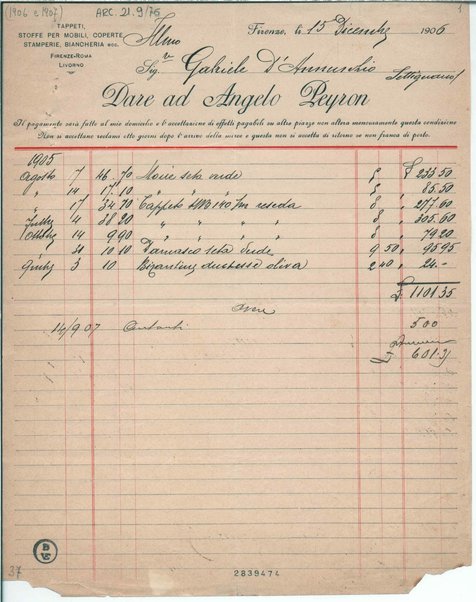 (1906 e 1907)
ARC. 21.9/76
1
TAPPETI,
STOFFE PER MOBILI, COPERTE
STAMPERIE, BIANCHERIA ecc.
FIRENZE-ROMA
LIVORNO
Firenze, li 15 Dicembre 1906
Illmo
Sigr Gabriele D'Annunzio
Settignano
Dare ad Angelo Peyron
Il pagamento sarà fatto al mio domicilio e l'accettazione di effetti pagabili su altre piazze non altera menomamente questa condizione
Non si accettano reclami otto giorni dopo l'arrivo della merce e questa non si accetta di ritorno se non franca di porto.
1905
Agosto 7 46.70 Moire seta verde £ 233.50
" 14 17.10 " " " 85.50
" 17 34 70 Tappeto 140 reseda 8 " 277.60
4 38 20 " " " " 8 " 305.60
14 9 90 " " " " 8 " 79.20
31 10 10 Damasco seta verde 9,50 " 95.95
3 10 Bizantino duchesse oliva 2 40 " 24.-
£ 1101.35
14/9.07 Contanti 500
£ 601.35
BVE
37
2839474